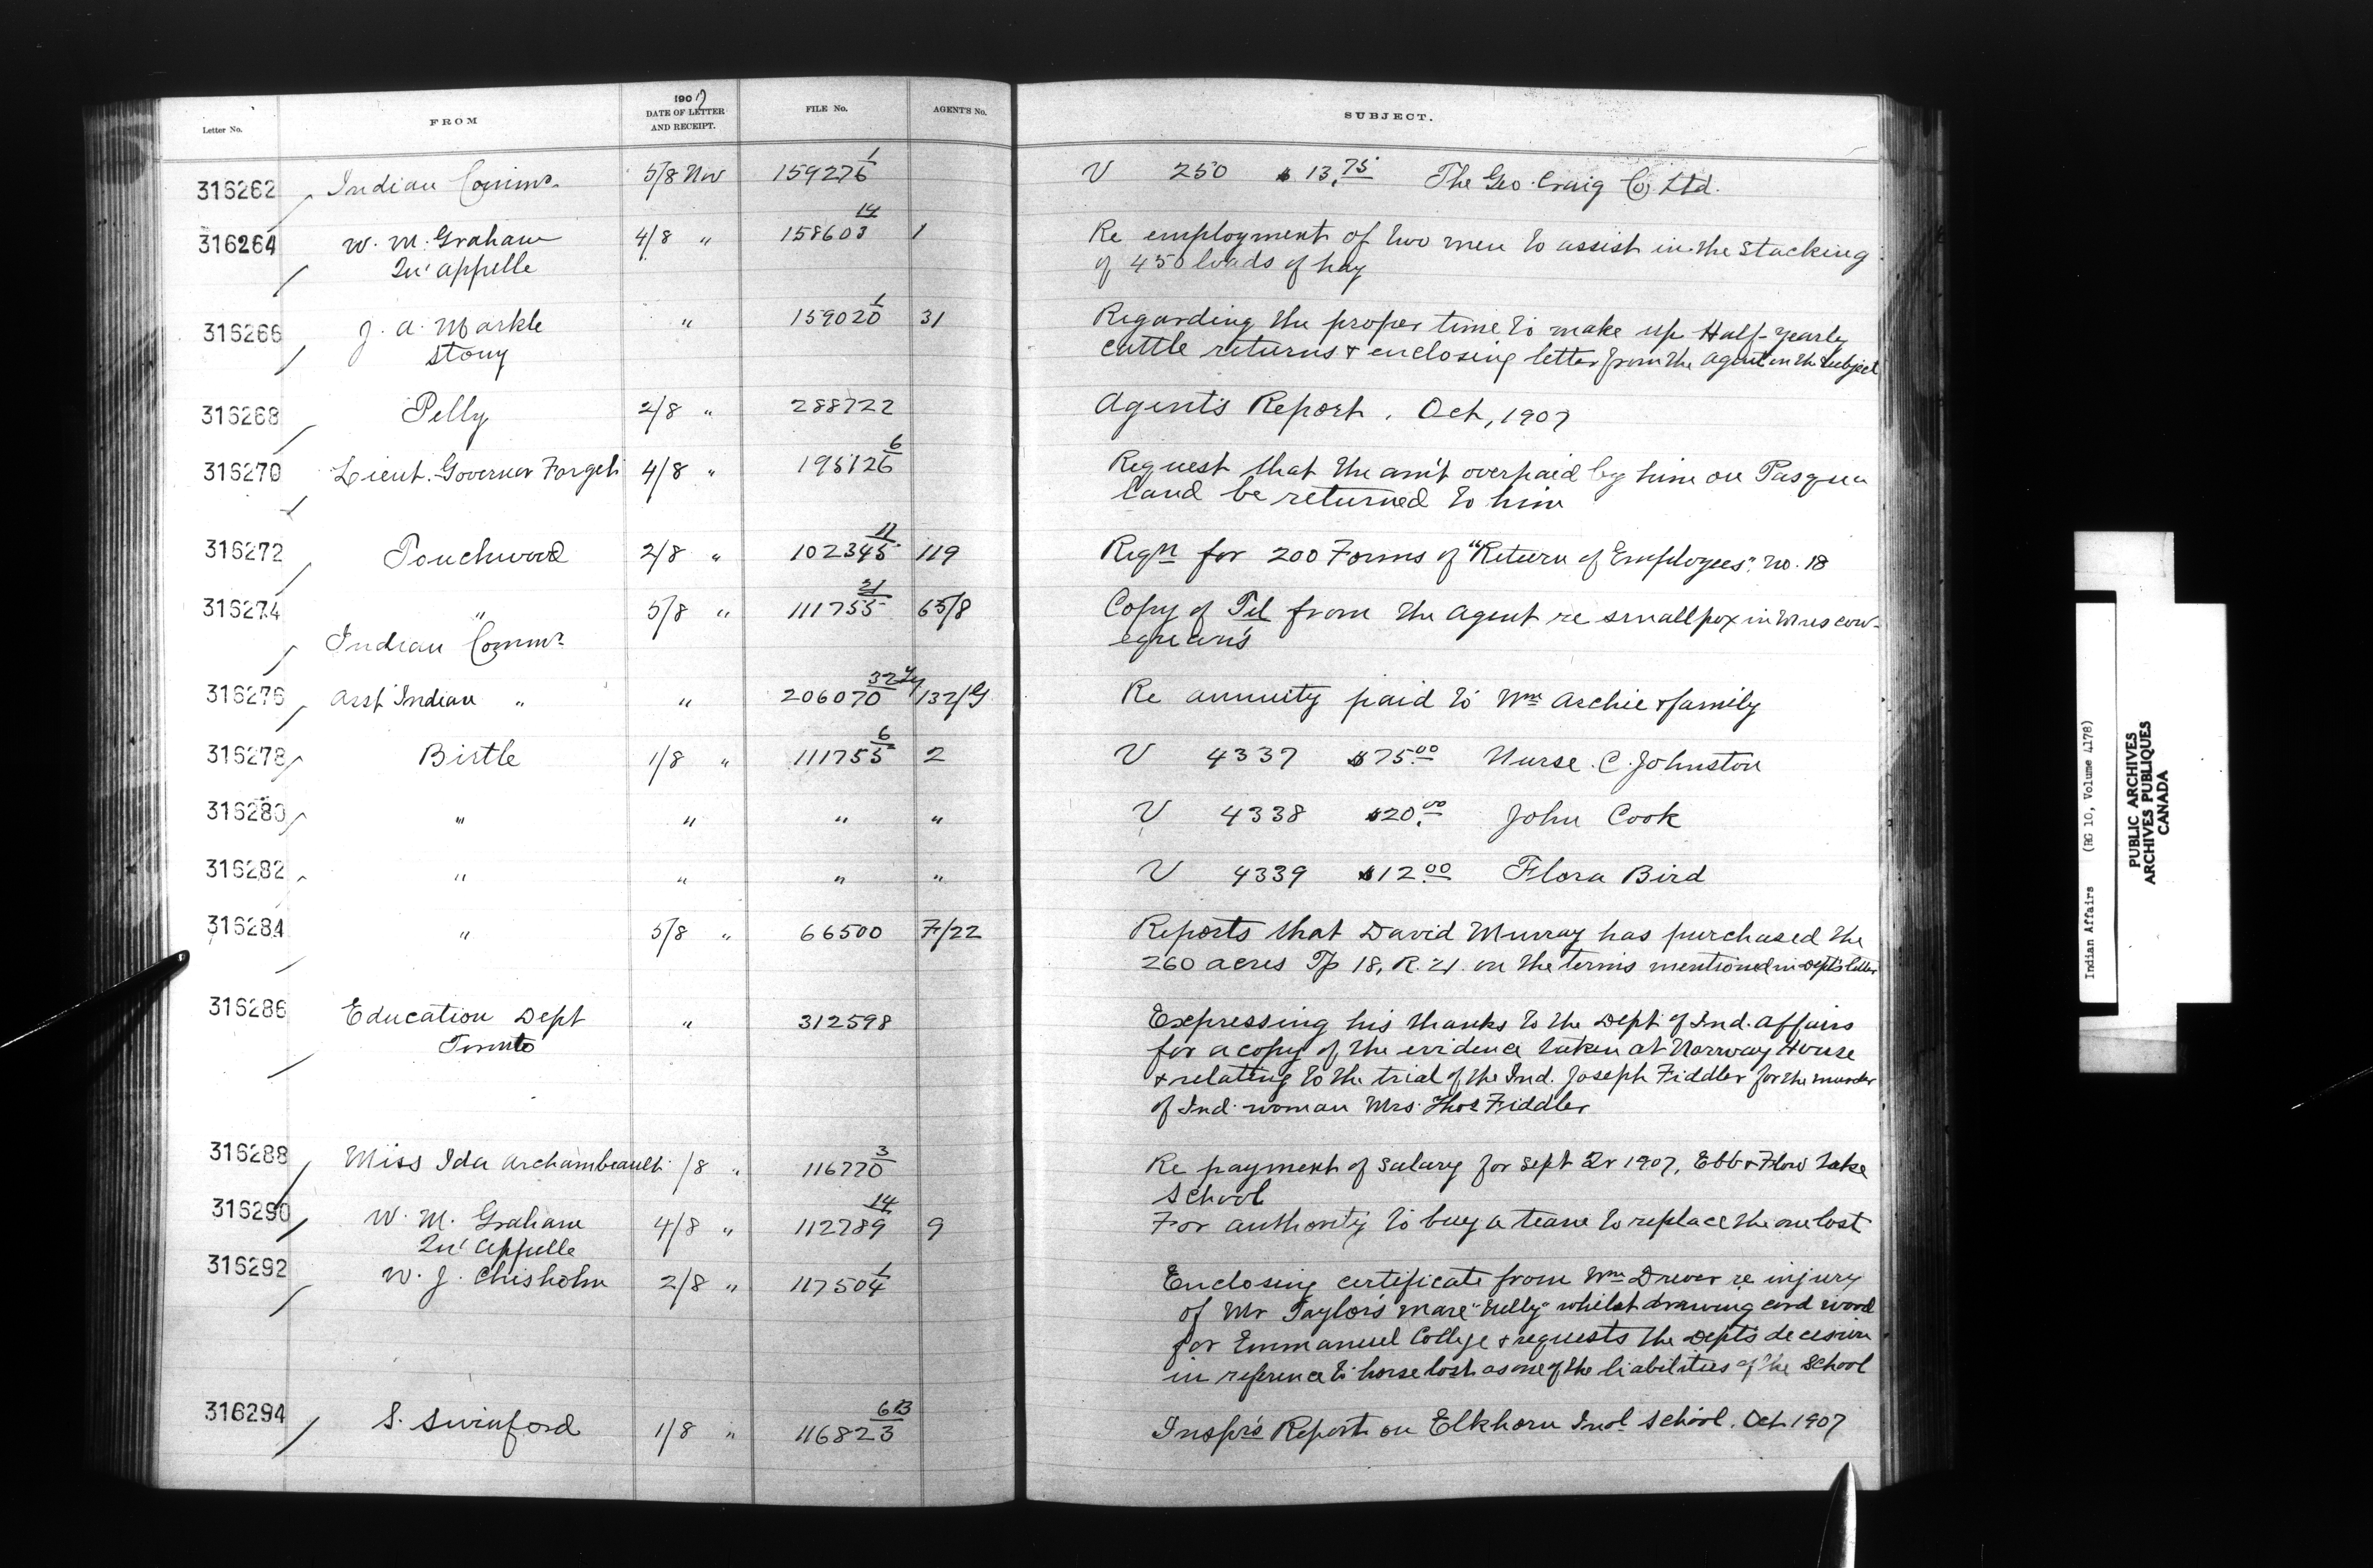 Letter No. FROM 1907 DATE OF LETTER AND RECEIPT. FILE No. AGENT'S No. SUBJECT.
316262 Indian Commr. 5/8 Nov 159276 1 V 250 $13.75 The Geo. Craig Co Ltd.
316264 W. M. Graham 4/8 " 158603 14 1 Re employment of two men to assist in the stacking
Qu'appelle of 450 loads of hay
316266 J. A. Markle " 159020 1 31 Regarding the proper time to make up Half-yearly
Stony cattle returns & enclosing letter from the agent on the subject
316268 Pelly 2/8 " 288722 Agent's Report. Oct, 1907
316270 Lieut. Governor Forget 4/8 " 195126 6 Request that the am't overpaid by him on Pasqua
land be returned to him
316272 Touchwood 2/8 " 102345 11 119 Reqn for 200 Forms of "Return of Employees". no. 18
316274 " 5/8 " 111755 21 65/8 Copy of Tel from the agent re smallpox in Muscow-
Indian Commr equan's
316276 Asst Indian " " 206070 32 132/G Re annuity paid to Wm Archie & family
316278 Birtle 1/8 " 111755 6 2 V 4337 $75.00 Nurse C. Johnston
316280 " " " " V 4338 $20.00 John Cook
316282 " " " " V 4339 $12.00 Flora Bird
316284 " 5/8 " 66500 7/22 Reports that David Murray has purchased the
260 acres Tp 18, R. 21. on the terms mentioned in Dept's letter
316286 Education Dept " 312598 Expressing his thanks to the Dept of Ind. Affairs
Toronto for a copy of the evidence taken at Norway House
& relating to the trial of the Ind. Joseph Fiddler for the murder
of Ind. woman Mrs. Thos Fiddler
316288 Miss Ida Archambeault /8 " 116770 3 Re payment of salary for Sept Qr 1907, Ebb & Flow Lake
School
316290 W. M. Graham 4/8 " 112789 14 9 For authority to buy a team to replace the one lost
Qu'Appelle
316292 W. J. Chisholm 2/8 " 117504 1 Enclosing certificate from Wm Drever re injury
of Mr Taylor's mare "Nelly" whilst drawing cord wood
for Emmanuel College & requests the Dept's decision
in reference to horse lost as one of the liabilities of the School
316294 S. Swinford 1/8 " 116823 6B Inspr's Report on Elkhorn Indl School. Oct 1907
Indian Affairs (RG 10, Volume 4178)
PUBLIC ARCHIVES
ARCHIVES PUBLIQUES
CANADA